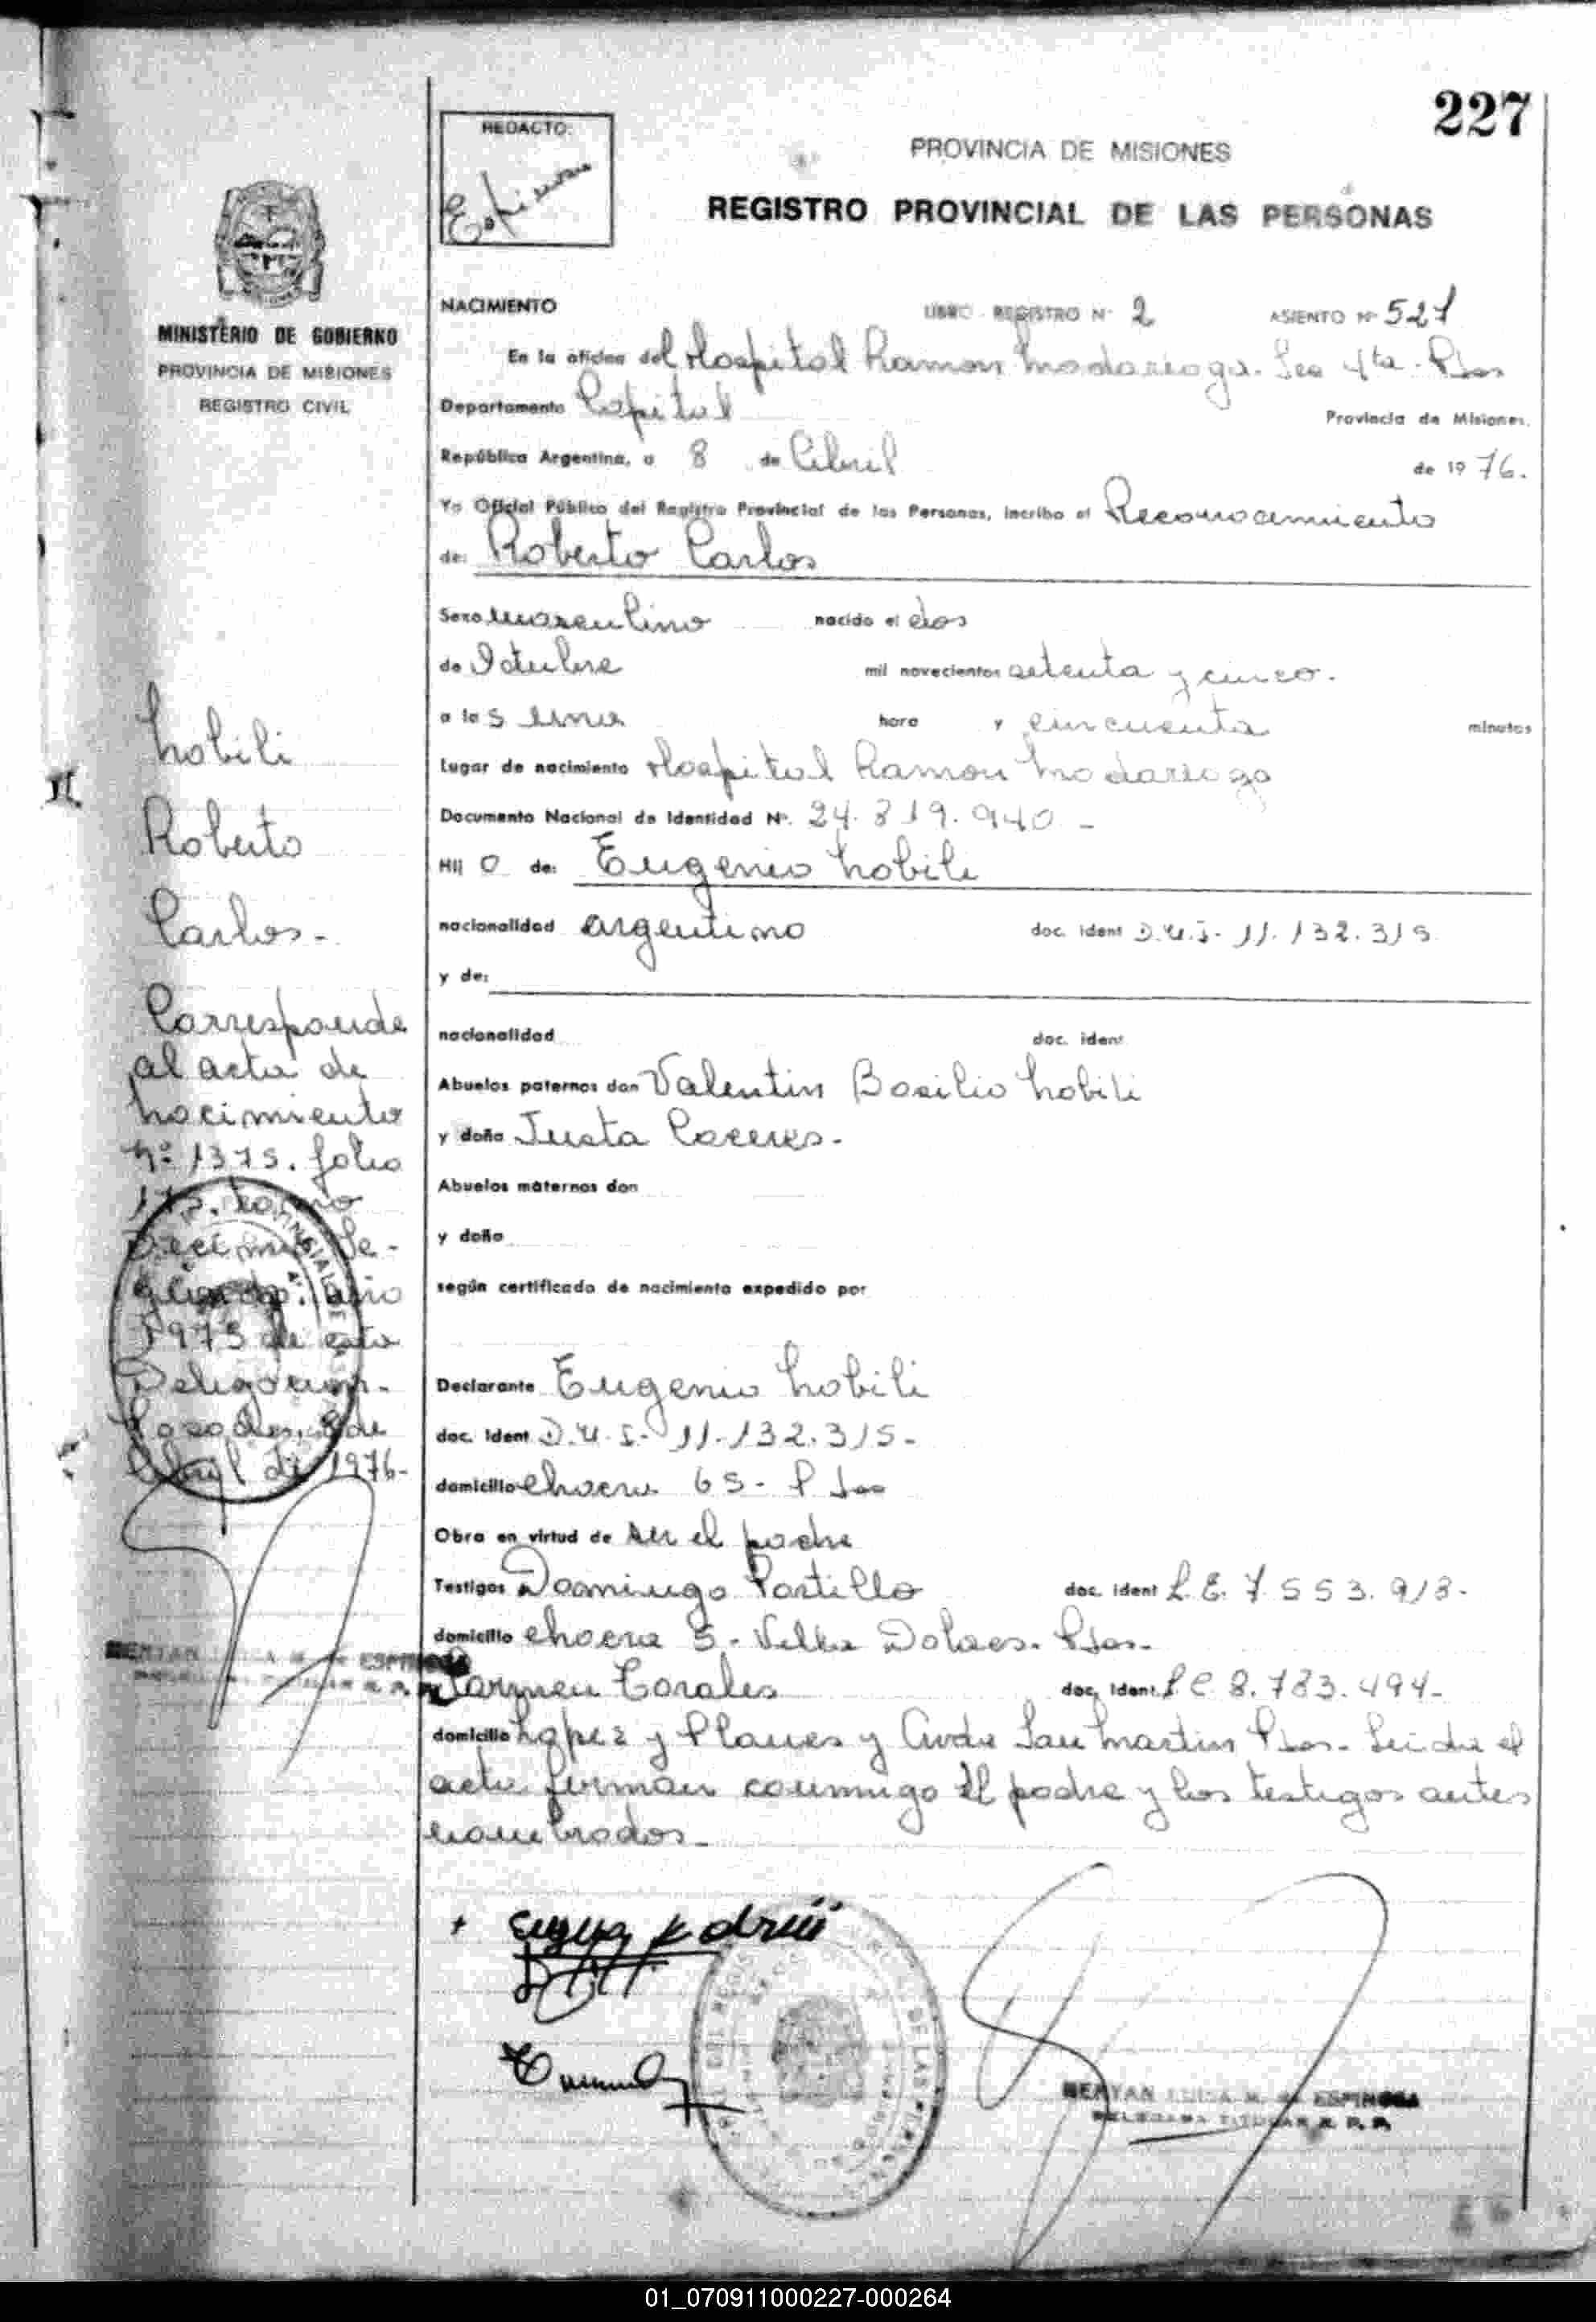 227
REDACTO:
Espinosa
PROVINCIA DE MISIONES
REGISTRO PROVINCIAL DE LAS PERSONAS
MINISTERIO DE GOBIERNO
PROVINCIA DE MISIONES
REGISTRO CIVIL
NACIMIENTO LIBRO REGISTRO Nº 2 ASIENTO Nº 521
En la oficina del Hospital Ramon Madariaga. Sec 4ta. Pdas
Departamento Capital Provincia de Misiones.
República Argentina, a 8 de Abril de 19 76.
Yo Oficial Público del Registro Provincial de las Personas, incribo el Reconocimiento
de: Roberto Carlos
Sexo masculino nacido el dos
de Octubre mil novecientos setenta y cinco.
a las una hora y cincuenta minutos
Lugar de nacimiento Hospital Ramon Madariaga
Documento Nacional de Identidad Nº. 24.819.940 -
Hij o de: Eugenio Nobili
nacionalidad argentino doc. ident D.N.I. 11.132.315
y de:
nacionalidad doc. ident
Abuelos paternos don Valentin Basilio Nobili
y doña Justa Caceres.
Abuelos maternos don
y doña
según certificado de nacimiento expedido por
Declarante Eugenio Nobili
doc. ident D.N.I. 11.132.315-
domicilio chacra 65 - Pdas
Obra en virtud de ser el padre
Testigos Domingo Portillo doc. ident L.E. 7.553.913-
domicilio chacra 5 - Villa Dolores. Pdas.
Carmen Corales doc. ident. L C 8.783.494-
domicilio Lopez y Planes y Avda San Martin Pdas. Leida el
acta firman conmigo El padre y los testigos antes
nombrados.
Nobili
Roberto
Carlos-
Corresponde
al acta de
nacimiento
Nº 1375. folio
175. tomo
Decimo Se-
gundo. año
1975 de esta
Delegacion.
Posadas, 8 de
Abril de 1976-
BERTAN LUISA M. de ESPINOSA
DELEGADA TITULAR R. P. P.
BERTAN LUISA M. de ESPINOSA
DELEGADA TITULAR R. P. P.
01_070911000227-000264